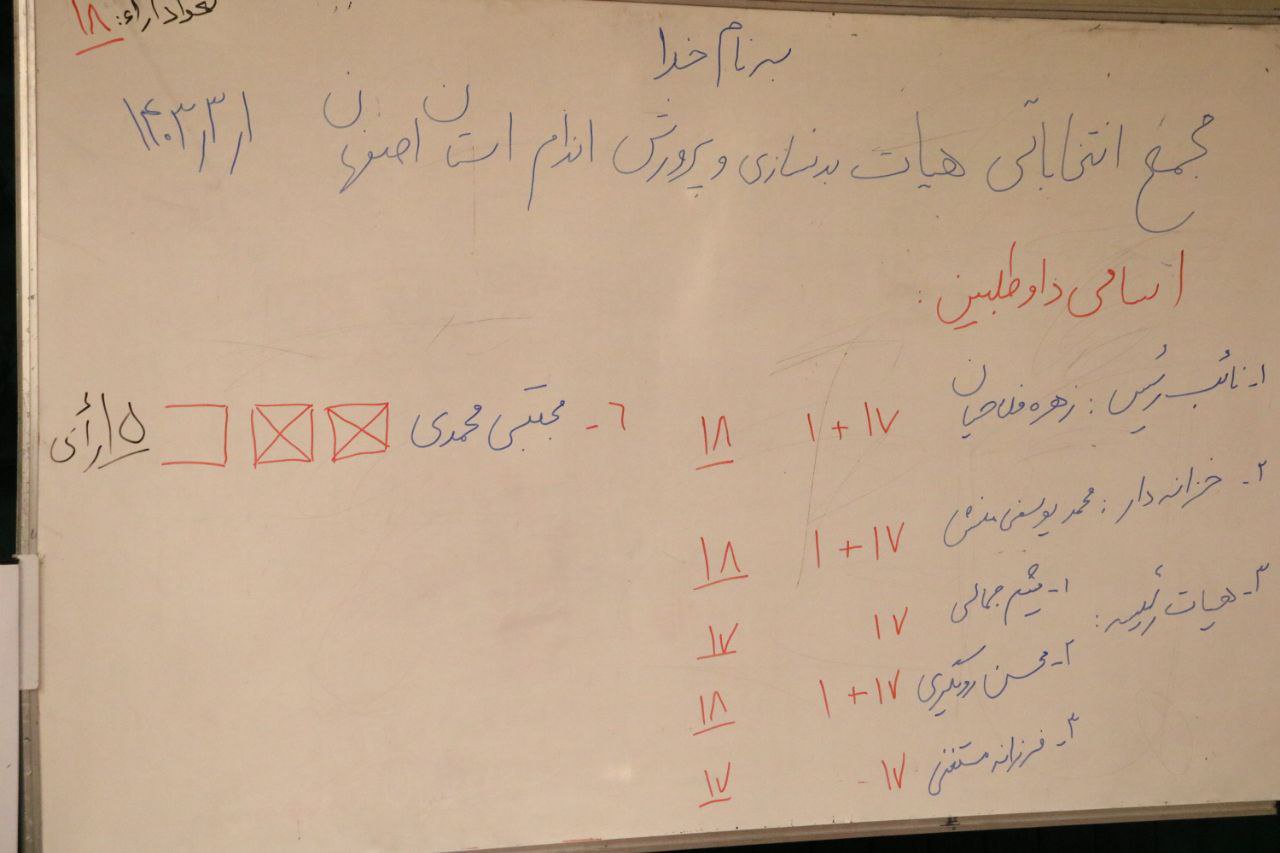 تعداد آراء: ۱۸
به نام خدا
مجمع انتخاباتی هیات بدنسازی و پرورش اندام استان اصفهان ۱۴۰۳/۳/۱
اسامی داوطلبین:
۱- نائب رئیس: زهره فلاحیان ۱۷ + ۱ ۱۸
۲- خزانه دار: محمد یوسفی منش ۱۷ + ۱ ۱۸
۳- هیات رئیسه: ۱- میثم جمالی ۱۷ ۱۷
۲- محسن رونگری ۱۷ + ۱ ۱۸
۳- فرزانه مستغنی ۱۷ ۱۷
۶- مجتبی محمدی ۱۵ رأی